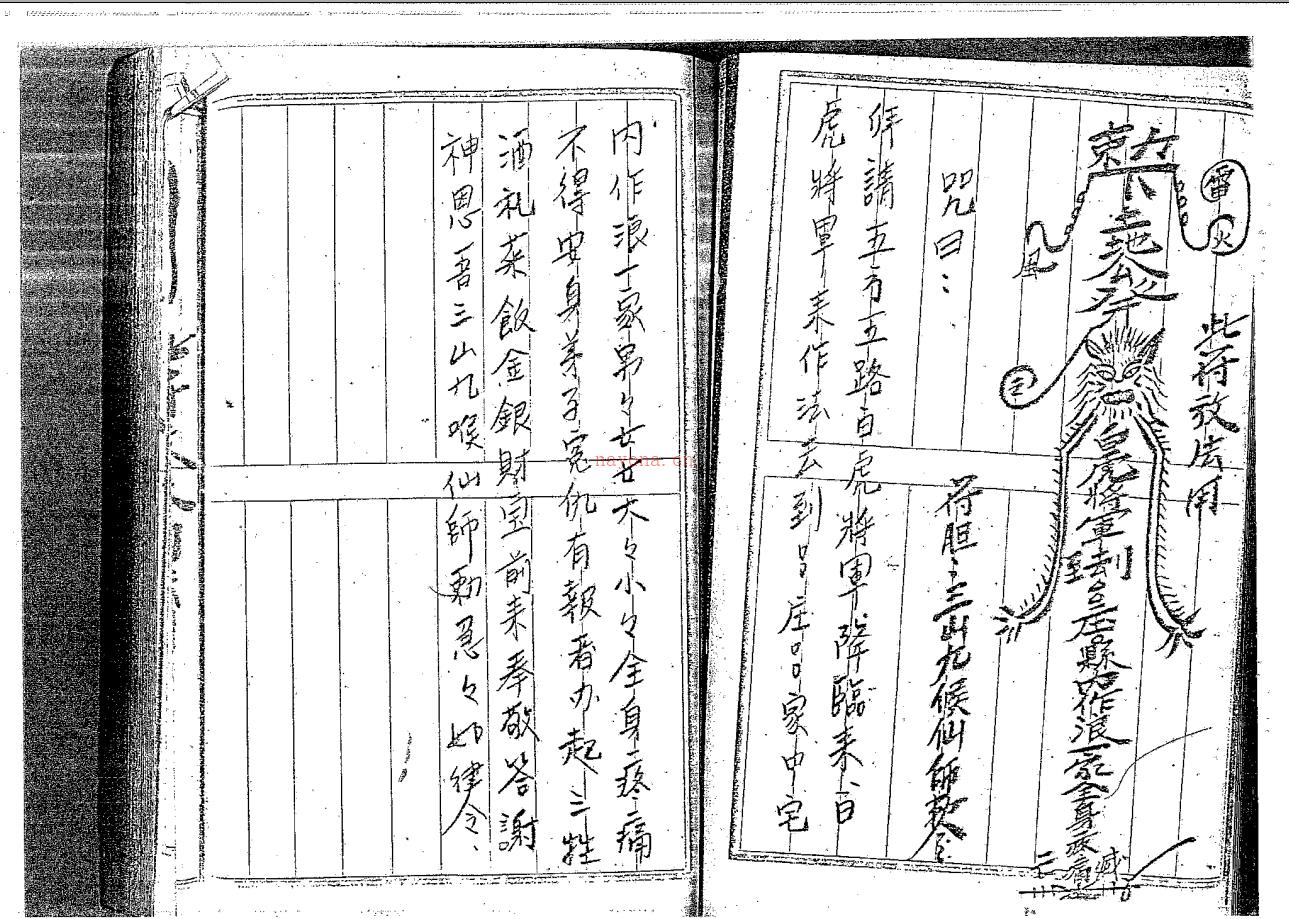 此符放法用
雷
火
風
土地公
皇虎將軍去到呂庄呂縣內作浪一家全身疼痛
符胆:三山九候仙師敕令:
咒曰:
拜請五方五路白虎將軍降臨来、白
虎將軍来作法去到呂庄呂家中宅
内作浪一家男々女女大々小々全身疼痛
不得安身弟子寃仇有報者办起三牲
酒礼菜飯金銀財宝前来奉敬答謝
神恩吾三山九喉仙師勅急々如律令、
nayona.cn